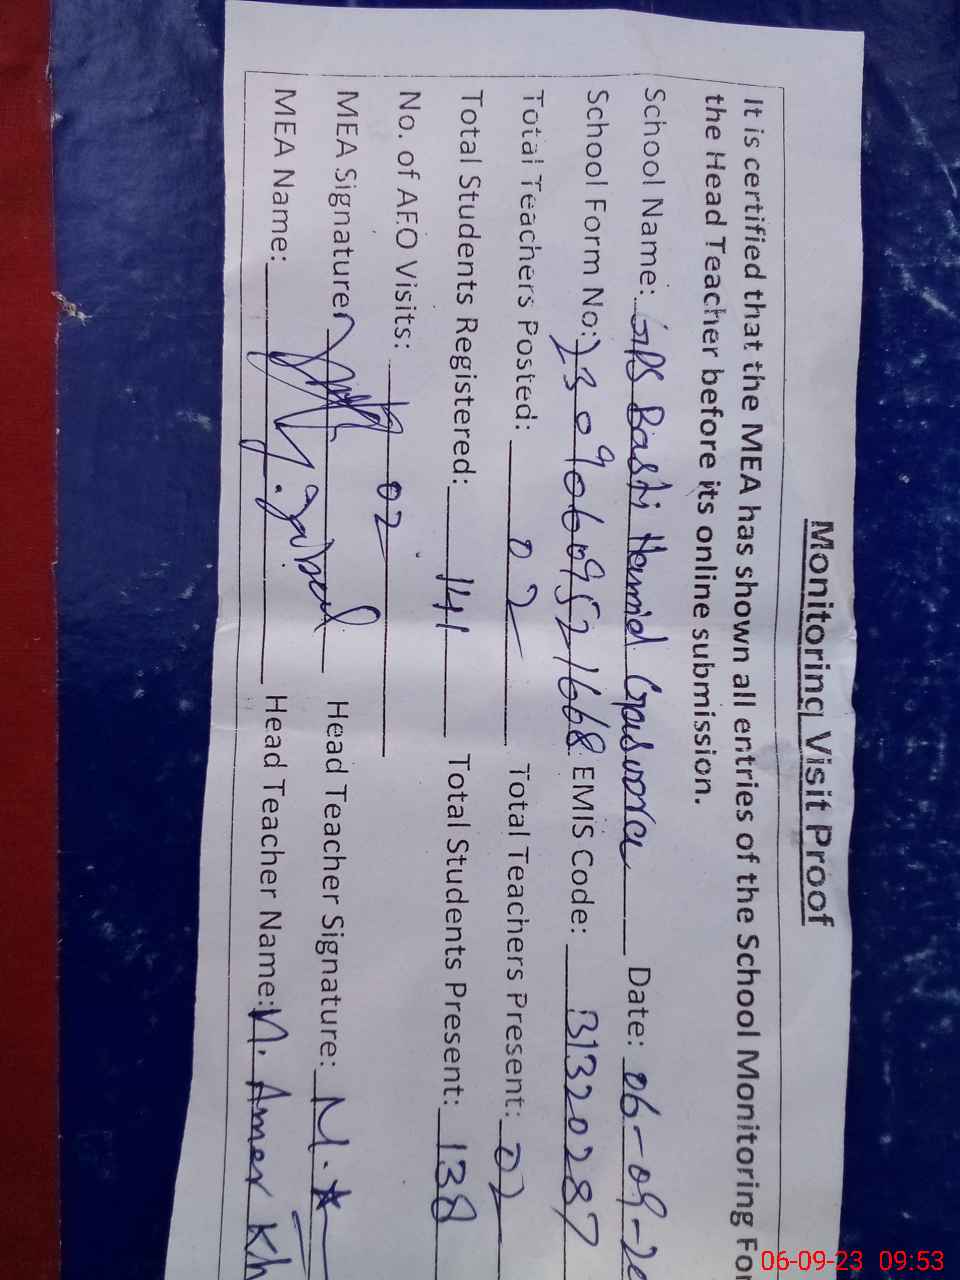 Monitoring Visit Proof
It is certified that the MEA has shown all entries of the School Monitoring For
the Head Teacher before its online submission.
School Name: GPS Basti Hamid Date: 06-09-2
School Form No: EMIS Code: 
Total Teachers Posted: 02 Total Teachers Present: 02
Total Students Registered: 141 Total Students Present: 138
No. of AEO Visits: 02
MEA Signature Head Teacher Signature:
MEA Name: Head Teacher Name: M. Amer Kh
06-09-23 09:53